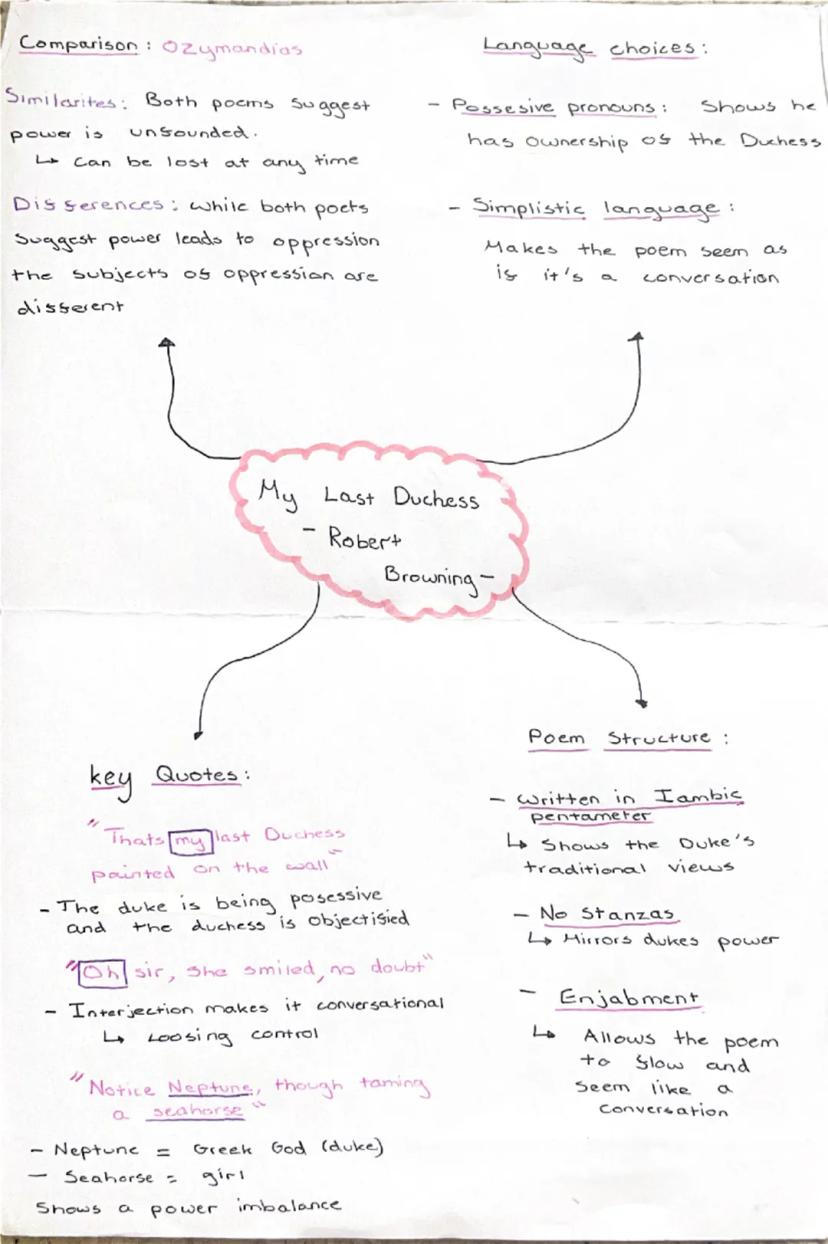 Comparison: Ozymandias
Similarites: Both poems suggest
power is unfounded.
↳ Can be lost at any time
Differences: while both poets
suggest power leads to oppression
the subjects of oppression are
different
Language choices:
- Possesive pronouns: Shows he
has ownership of the Duchess
- Simplistic language:
Makes the poem seem as
if it's a conversation
My Last Duchess
- Robert
Browning -
key Quotes:
"Thats my last Duchess
painted on the wall"
- The duke is being posessive
and the duchess is objectified
"Oh sir, she smiled, no doubt"
- Interjection makes it conversational
↳ Loosing control
"Notice Neptune, though taming
a seahorse"
- Neptune = Greek God (duke)
- Seahorse = girl
Shows a power imbalance
Poem Structure:
- Written in Iambic
pentameter
↳ Shows the Duke's
traditional views
- No Stanzas
↳ Mirrors dukes power
- Enjabment
↳ Allows the poem
to flow and
seem like a
conversation